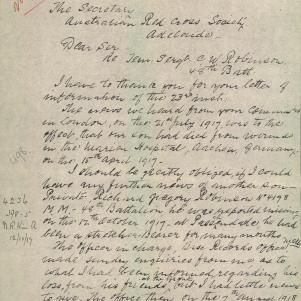 The Secretary
Australian Red Cross Society
Adelaide.
Dear Sir
Re Tem. Sergt. C. W. Robinson.
48th Batt
I have to thank you for your letter &
information of the 23rd inst.
The news we heard from your
in London, on the 2nd July 1917 was to the
effect, that our son had died from wounds
in the Hospital, Aachen, Germany
on the 15th April 1917.
I should be greatly obliged, if I could
have any further news of another son
Private Richard Gregory Robinson No 4198
M.M. 48th Battalion he was reported missing
on the 12th October 1917, at
been a stretcher-bearer for many months
The officer in charge, Base Records Office
made enquiries from me as to
what I had been informed regarding his
loss, from his friends, but I had little news
to give.
4198